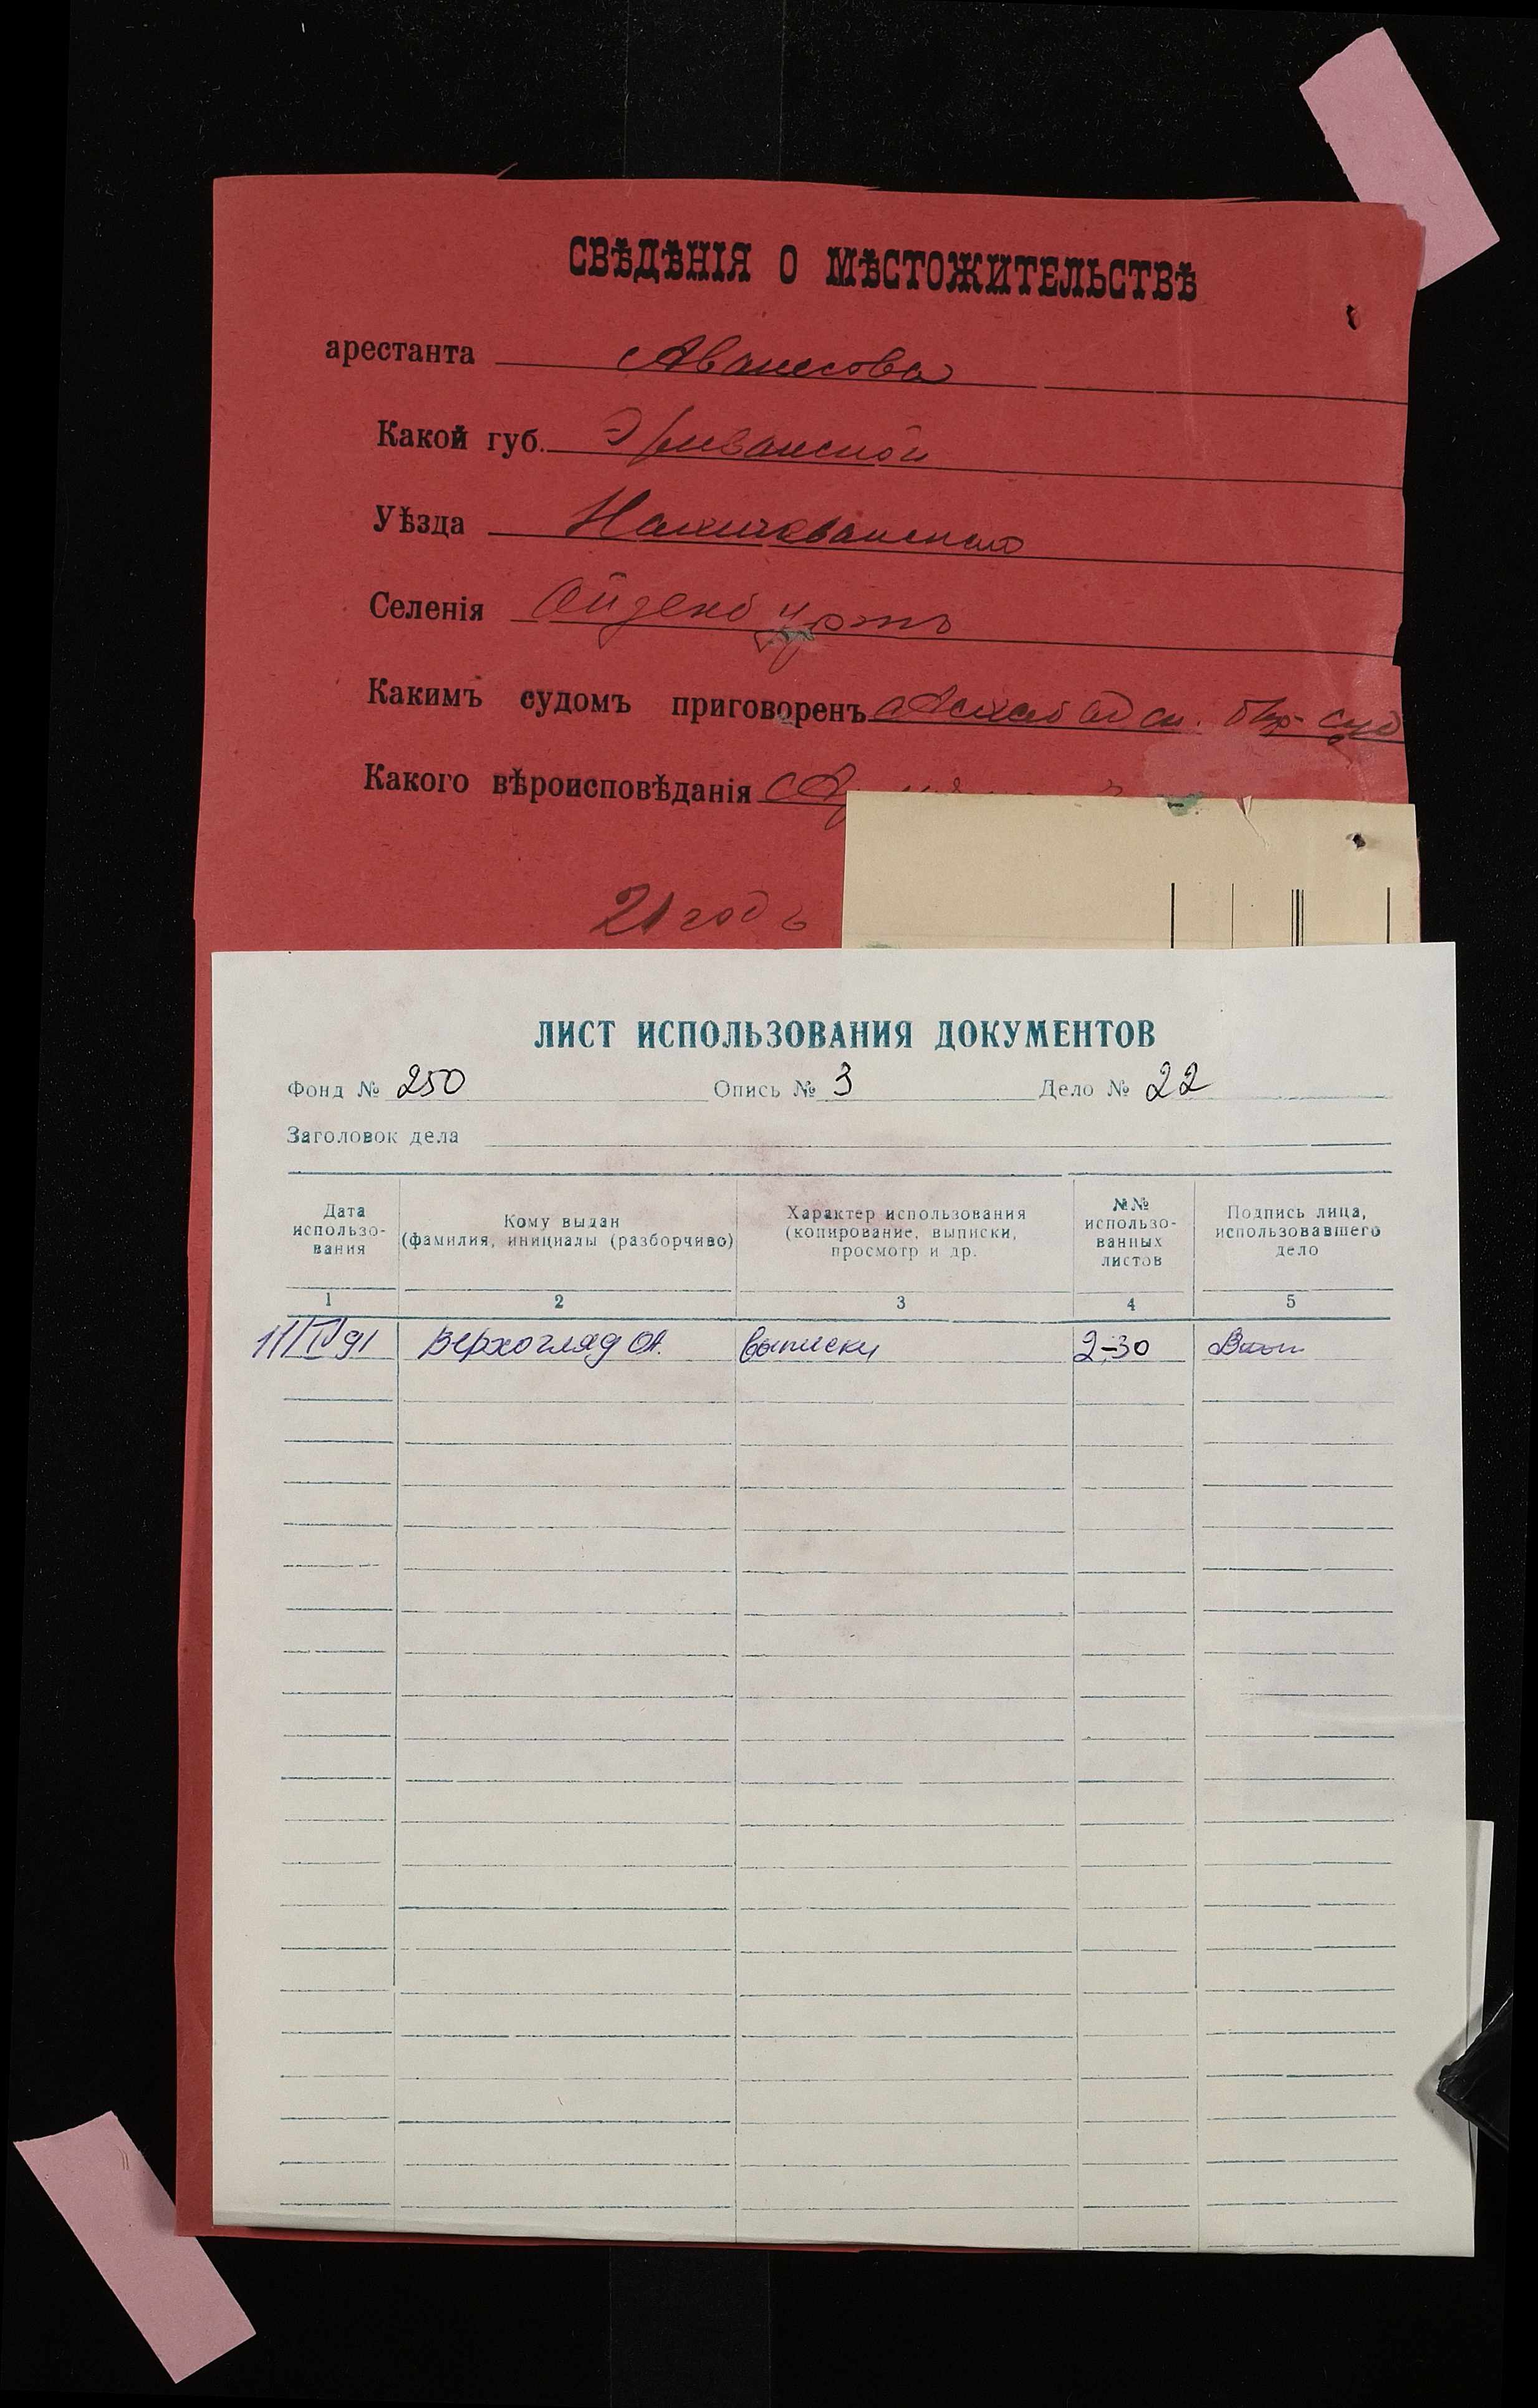 СВѢДѢНІЯ О МѢСТОЖИТЕЛЬСТВѢ
арестанта Аванесова
Какой губ. Эриванской
Уѣзда Нахичеванскаго
Селенія
Какимъ судомъ приговоренъ Асхабадск. Окр. суд
Какого вѣроисповѣданія
21 годъ
ЛИСТ ИСПОЛЬЗОВАНИЯ ДОКУМЕНТОВ
Фонд № 250 Опись № 3 Дело № 22
Заголовок дела
Дата использо-вания
Кому выдан (фамилия, инициалы (разборчиво)
Характер использования (копирование, выписки, просмотр и др.
№№ использо-ванных листов
Подпись лица, использовавшего дело
1 2 3 4 5
11/IV 91 Верхогляд О.А. выписки 2-30